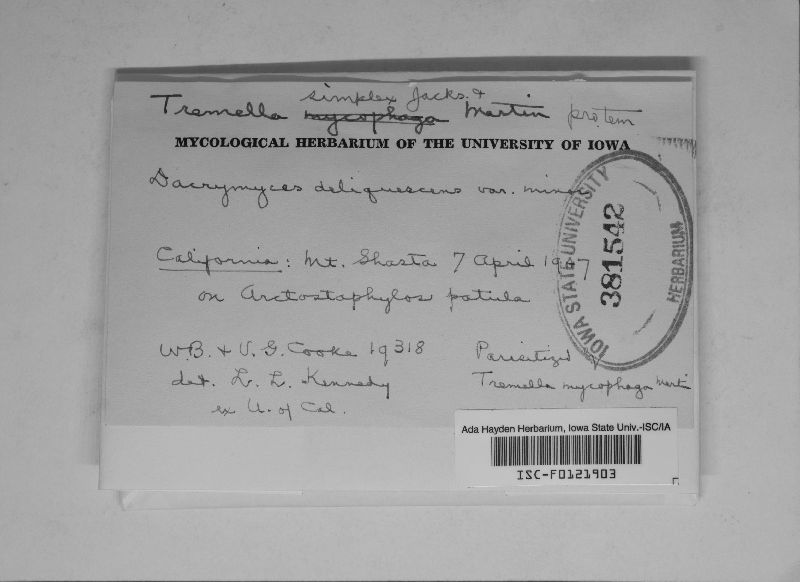 simplex Jacks. &
Tremella mycophaga Martin pro tem
MYCOLOGICAL HERBARIUM OF THE UNIVERSITY OF IOWA
Dacrymyces deliquescens var. minor
California: Mt. Shasta 7 April 1947
on Arctostaphylos patula
W.B. & V. G. Cooke 19318
det. L. L. Kennedy
ex U. of Cal.
Parisitized by
Tremella mycophaga Martin
IOWA STATE UNIVERSITY
381542
HERBARIUM
Ada Hayden Herbarium, Iowa State Univ.-ISC/IA
ISC-F0121903